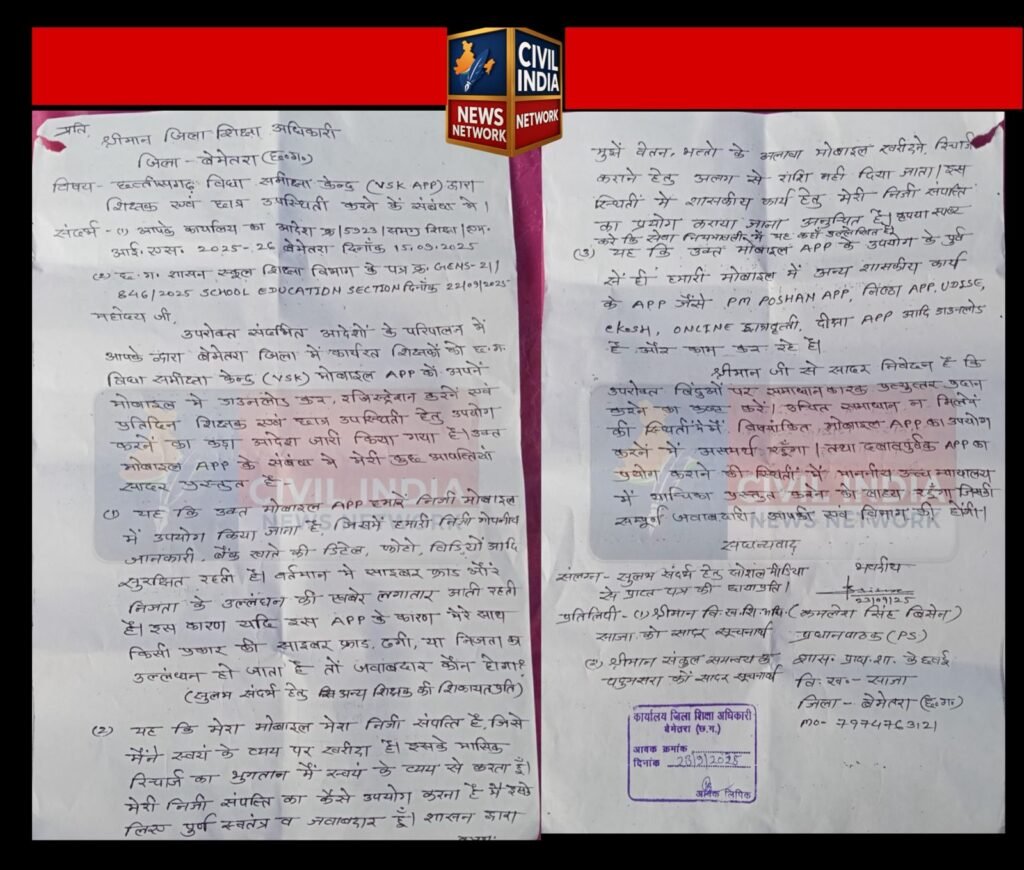 CIVIL
INDIA
NEWS
NETWORK
NETWORK
प्रति,
श्रीमान जिला शिक्षा अधिकारी
जिला - बेमेतरा (छ०ग०)
विषय - छत्तीसगढ़ विद्या समीक्षा केन्द्र (VSK APP) द्वारा
शिक्षक एवं छात्र उपस्थिती करने के संबंध में।
संदर्भ - (1) आपके कार्यालय का आदेश क्र/5923/समग्र शिक्षा/एम.
आई.एस. 2025-26 बेमेतरा दिनाँक 15.09.2025
(2) छ.ग. शासन स्कूल शिक्षा विभाग के पत्र क्र. GENS-21/
846/2025 SCHOOL EDUCATION SECTION दिनाँक 22/09/2025
महोदय जी,
उपरोक्त संदर्भित आदेशों के परिपालन में
आपके द्वारा बेमेतरा जिला में कार्यरत शिक्षकों को छ.ग.
विद्या समीक्षा केन्द्र (VSK) मोबाइल APP को अपने
मोबाइल में डाउनलोड कर, रजिस्ट्रेशन करने एवं
प्रतिदिन शिक्षक एवं छात्र उपस्थिती हेतु उपयोग
करने का कड़ा आदेश जारी किया गया है। उक्त
मोबाइल APP के संबंध मे मेरी कुछ आपत्तियाँ
सादर प्रस्तुत है -
(1) यह कि उक्त मोबाइल APP हमारे निजी मोबाइल
में उपयोग किया जाना है, जिसमें हमारी निजी गोपनीय
जानकारी, बैंक खाते की डिटेल, फोटो, विडियो आदि
सुरक्षित रहती है। वर्तमान मे साइबर फ्राड और
निजता के उल्लंघन की खबरे लगातार आती रहती
है। इस कारण यदि इस APP के कारण मेरे साथ
किसी प्रकार की साइबर फ्राड, ठगी, या निजता का
उल्लंघन हो जाता है तो जवाबदार कौन होगा?
(सुलभ संदर्भ हेतु अन्य शिक्षक की शिकायत प्रति)
(2) यह कि मेरा मोबाइल मेरा निजी संपत्ति है, जिसे
मैंने स्वयं के व्यय पर खरीदा है। इसके मासिक
रिचार्ज का भुगतान मैं स्वयं के व्यय से करता हूँ।
मेरी निजी संपत्ति का कैसे उपयोग करना है मैं इसके
लिए पुर्ण स्वतंत्र व जवाबदार हूँ। शासन द्वारा
मुझे वेतन, भत्तो के अलावा मोबाइल खरीदने, रिचार्ज
कराने हेतु अलग से राशि नहीं दिया जाता। इस
स्थिती में शासकीय कार्य हेतु मेरी निजी संपत्ति
का प्रयोग कराया जाना अनुचित है। कृपया स्पष्ट
करे कि सेवा नियमावली में यह कहाँ उल्लेखित है।
(3) यह कि उक्त मोबाइल APP के उपयोग के पुर्व
से ही हमारी मोबाइल में अन्य शासकीय कार्य
के APP जैसे PM POSHAN APP, निष्ठा APP, UDISE,
ekosh, ONLINE छात्रवृत्ती, दीक्षा APP आदि डाउनलोड
है और काम कर रहे है।
श्रीमान जी से सादर निवेदन है कि
उपरोक्त बिंदुओं पर समाधान कारक प्रत्युत्तर प्रदान
करने का कष्ट करें। उचित समाधान न मिलने
की स्थिती में मैं विषयांकित मोबाइल APP का उपयोग
करने में असमर्थ रहूँगा। तथा दबावपुर्वक APP का
प्रयोग कराने की स्थिती में माननीय उच्च न्यायालय
में याचिका प्रस्तुत करने को बाध्य रहूंगा जिसकी
सम्पूर्ण जवाबदारी आपकी एवं विभाग की होगी।
सधन्यवाद
संलग्न - सुलभ संदर्भ हेतु सोशल मीडिया
से प्राप्त पत्र की छायाप्रति।
भवदीय
23/09/25
प्रतिलिपी - (1) श्रीमान वि.ख.शि.अधि. (कमलेश सिंह बिसेन)
साजा को सादर सूचनार्थ प्रधानपाठक (PS)
(2) श्रीमान संकुल समन्वयक शास. प्राथ. शा. केहचई
को सादर सूचनार्थ वि. ख. - साजा
जिला - बेमेतरा (छ०ग०)
mo- 7974763121
कार्यालय जिला शिक्षा अधिकारी
बेमेतरा (छ.ग.)
आवक क्रमांक
दिनांक 23/9/2025
आवक लिपिक
CIVIL INDIA
NEWS NETWORK
CIVIL INDIA
NEWS NETWORK